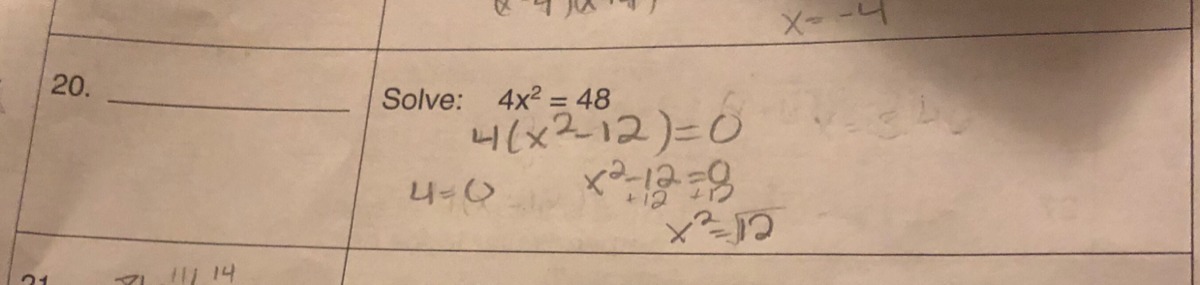 x = -4
20. Solve: 4x² = 48
4(x²-12)=0
4=0 x²-12=0
+12 +12
x²=√12
21. 14